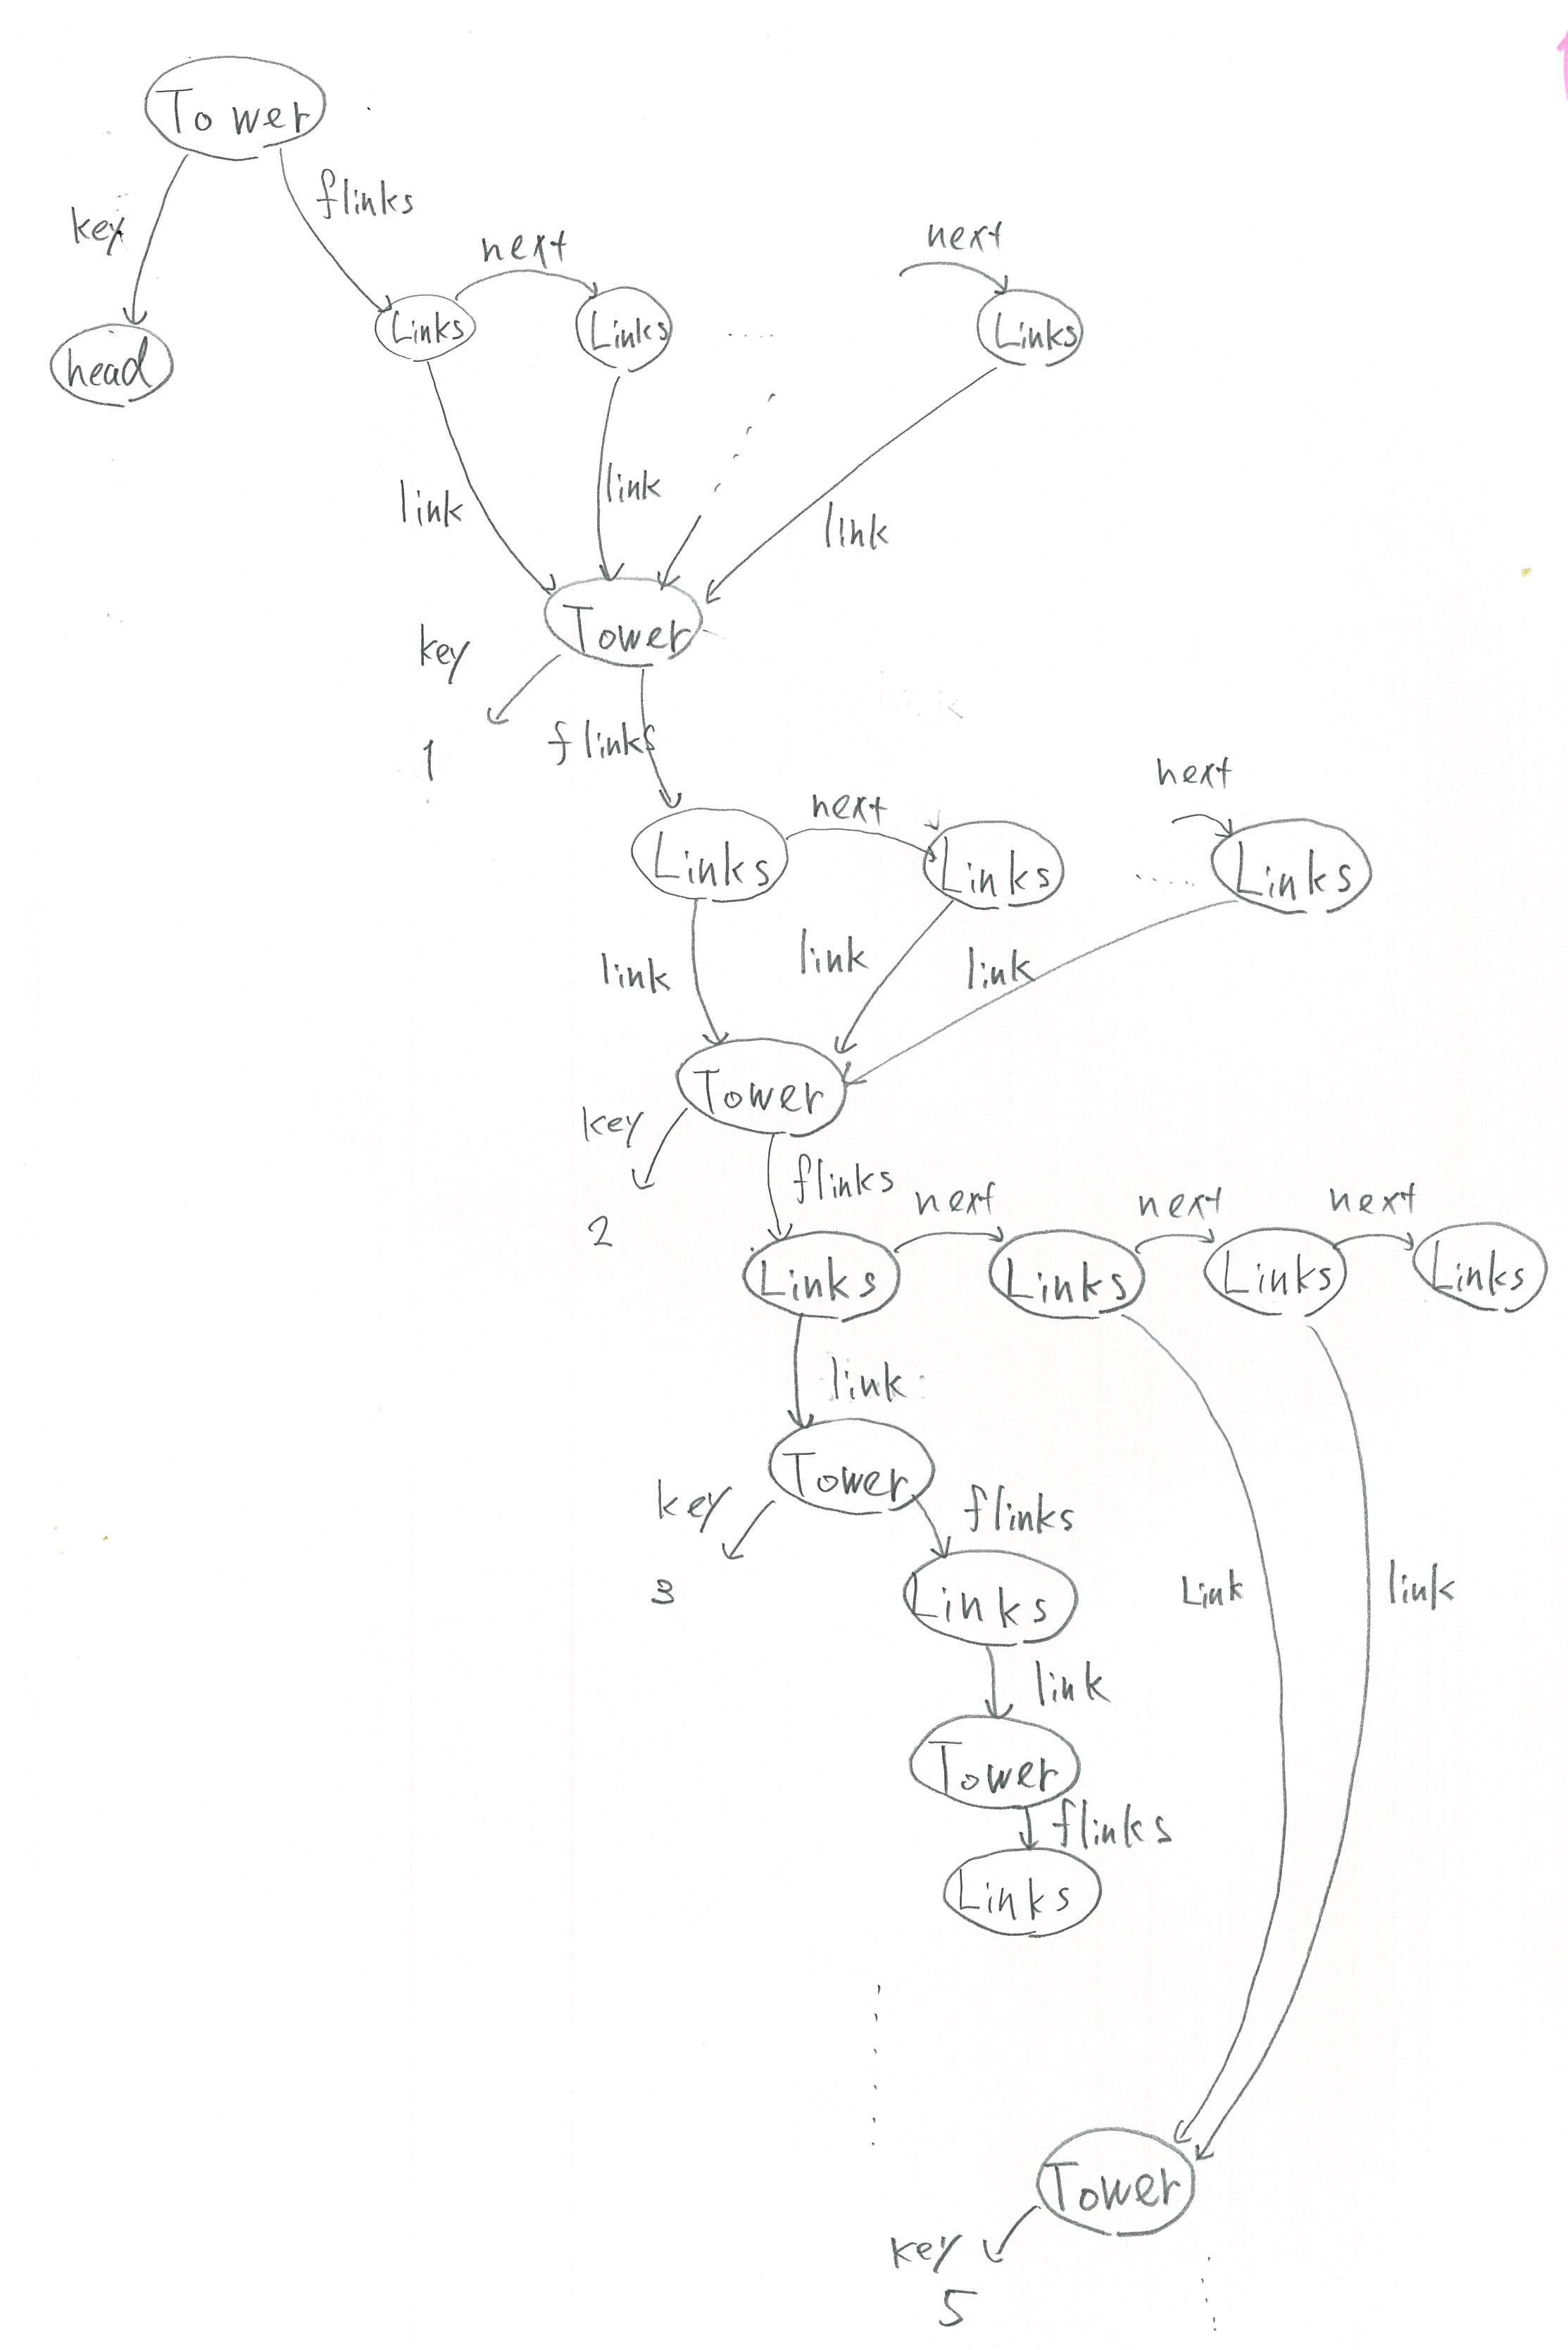 Tower
key
flinks
next
next
head
Links
Links
Links
link
link
link
Tower
key
1
flinks
next
next
Links
Links
Links
link
link
link
Tower
key
2
flinks
next
next
next
Links
Links
Links
Links
link
Tower
key
3
flinks
Links
Link
link
link
Tower
flinks
Links
Tower
key
5